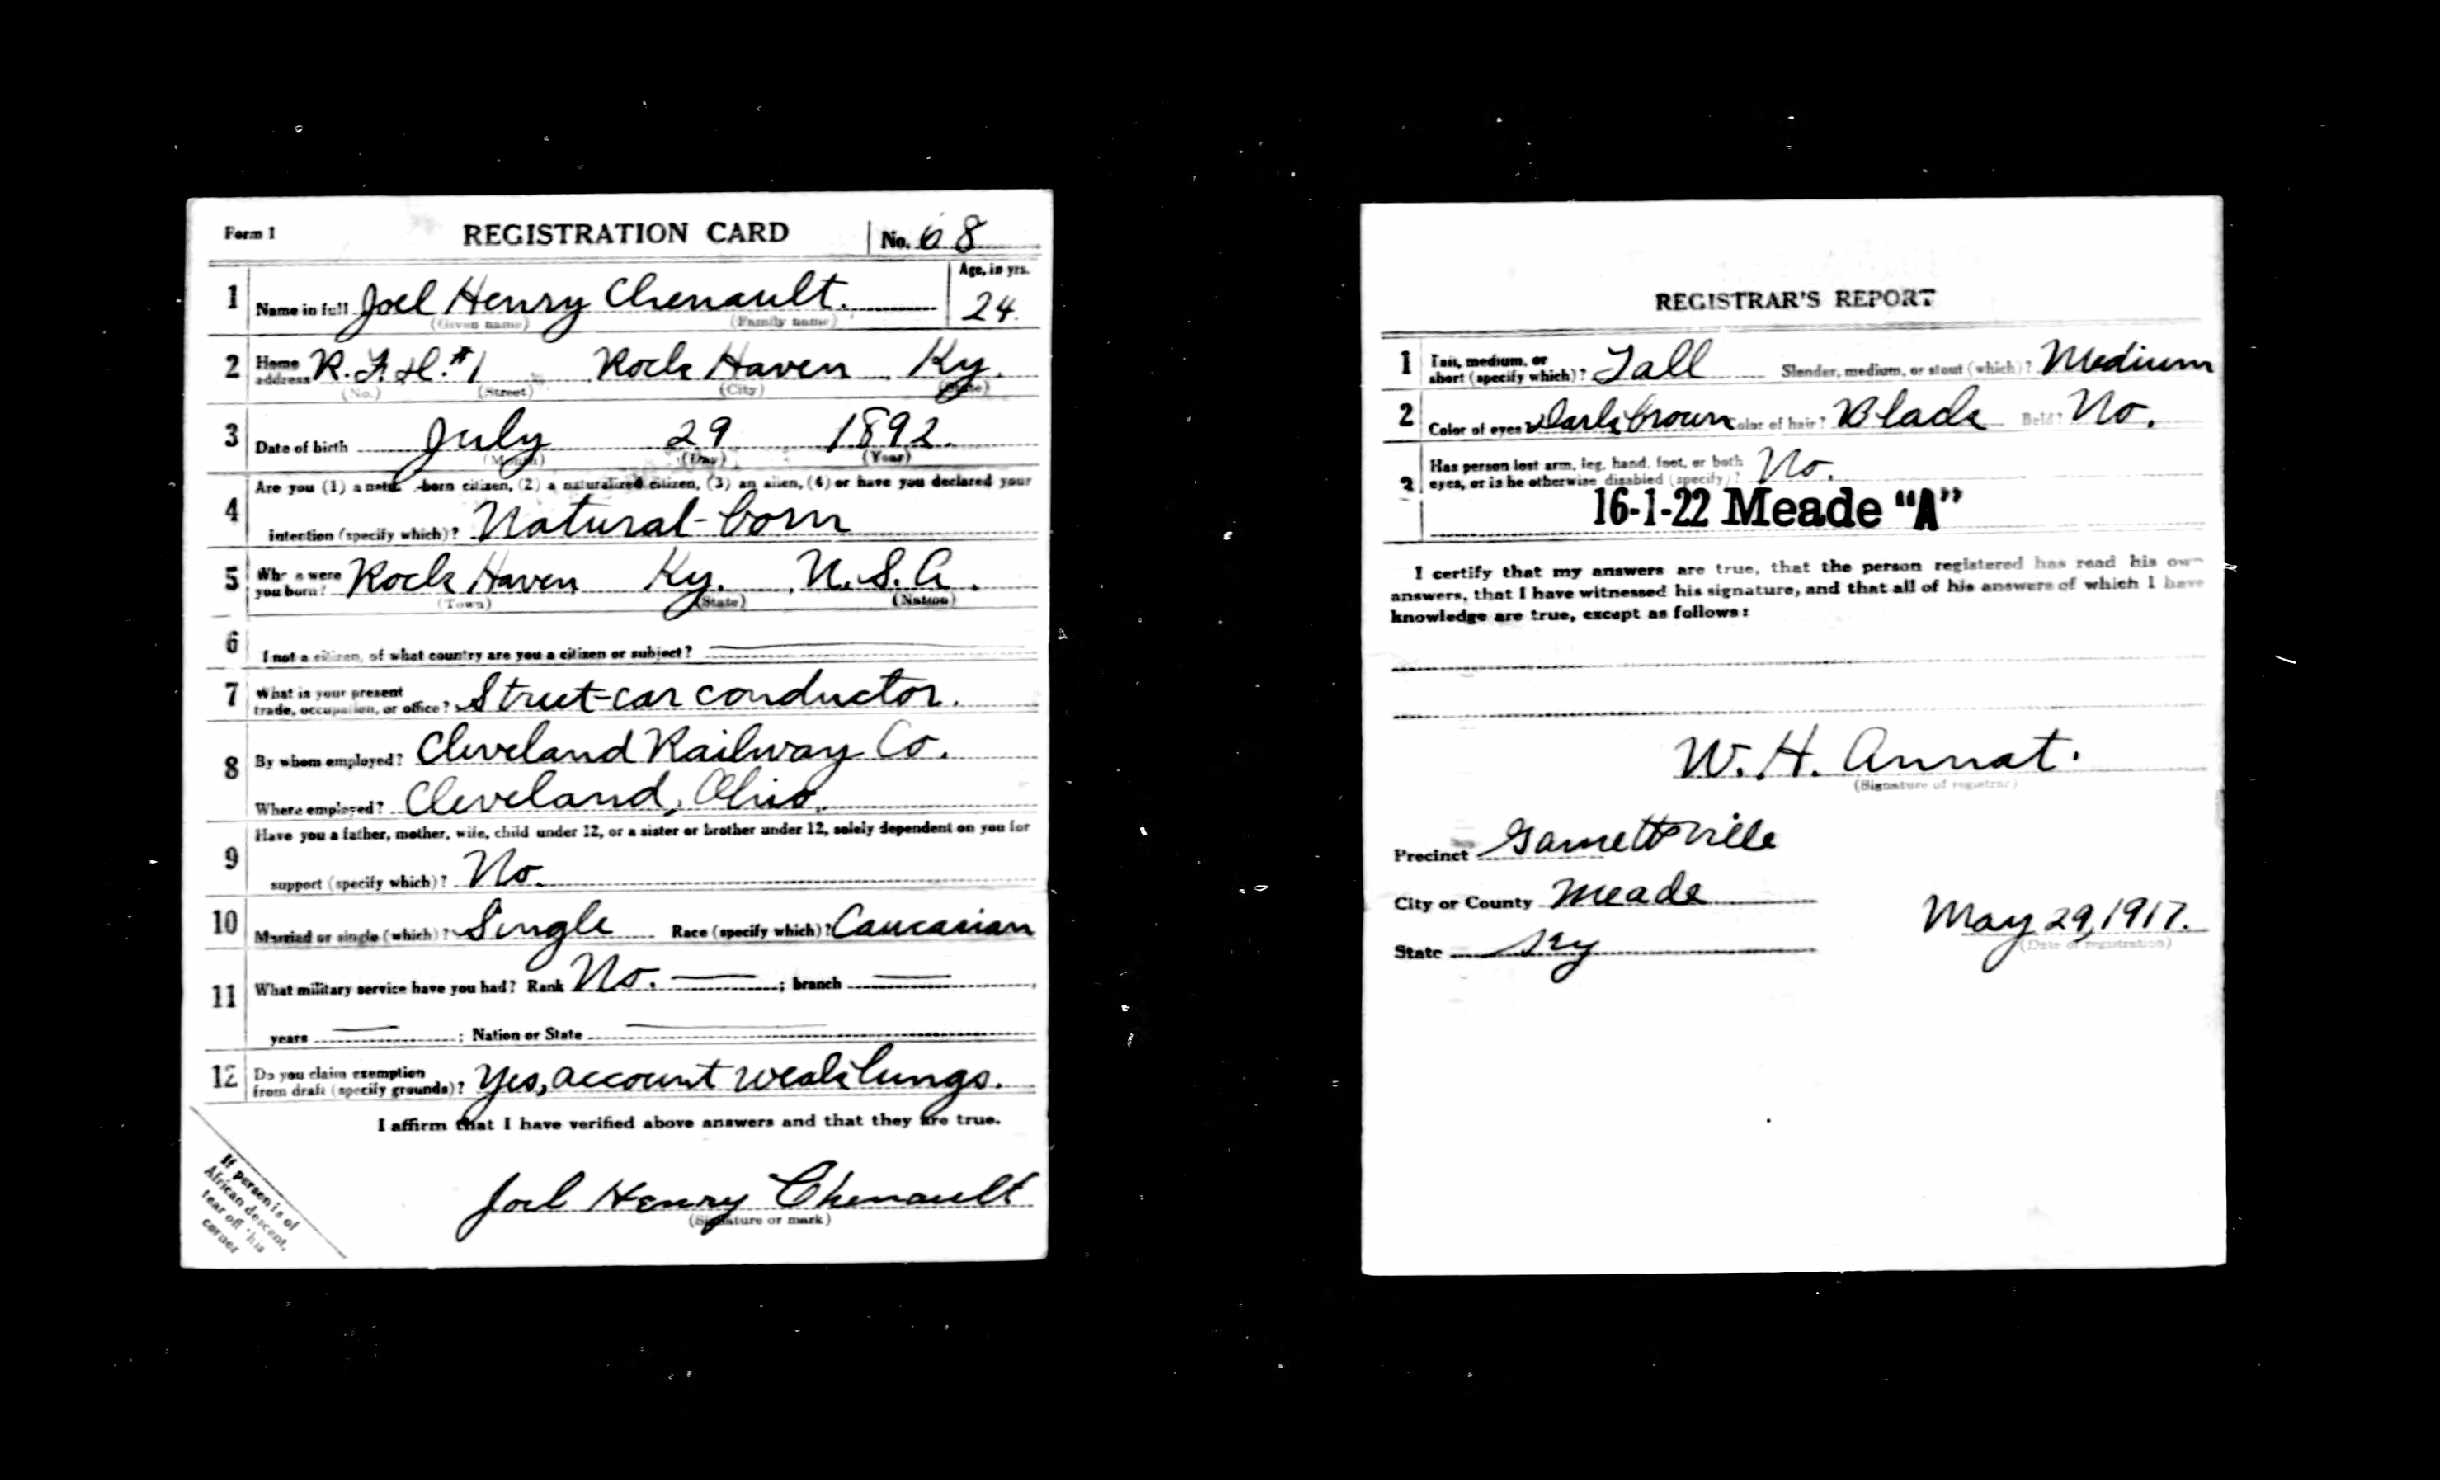 Form 1 REGISTRATION CARD No. 68
1 Name in full Joel Henry Chenault. Age, in yrs. 24.
(Given name) (Family name)
2 Home address R.F.D. #1 Rock Haven Ky.
(No.) (Street) (City) (State)
3 Date of birth July 29 1892
(Month) (Day) (Year)
4 Are you (1) a natural-born citizen, (2) a naturalized citizen, (3) an alien, (4) or have you declared your
intention (specify which)? Natural-born
5 Where were you born? Rock Haven Ky. U.S.A.
(Town) (State) (Nation)
6 If not a citizen, of what country are you a citizen or subject?
7 What is your present trade, occupation, or office? Street-car conductor.
8 By whom employed? Cleveland Railway Co.
Where employed? Cleveland, Ohio.
9 Have you a father, mother, wife, child under 12, or a sister or brother under 12, solely dependent on you for
support (specify which)? No.
10 Married or single (which)? Single Race (specify which)? Caucasian
11 What military service have you had? Rank No. ; branch
years ; Nation or State
12 Do you claim exemption from draft (specify grounds)? Yes, account weak lungs.
I affirm that I have verified above answers and that they are true.
Joel Henry Chenault
(Signature or mark)
If person is of
African descent,
tear off this
corner
REGISTRAR'S REPORT
1 Tall, medium, or short (specify which)? Tall Slender, medium, or stout (which)? Medium
2 Color of eyes? Dark brown Color of hair? Black Bald? No.
3 Has person lost arm, leg, hand, foot, or both
eyes, or is he otherwise disabled (specify)? No.
16-1-22 Meade “A”
I certify that my answers are true, that the person registered has read his own
answers, that I have witnessed his signature, and that all of his answers of which I have
knowledge are true, except as follows:
W. H. Annat.
(Signature of registrar)
Precinct Garnettsville
City or County Meade
State Ky
May 29, 1917.
(Date of registration)